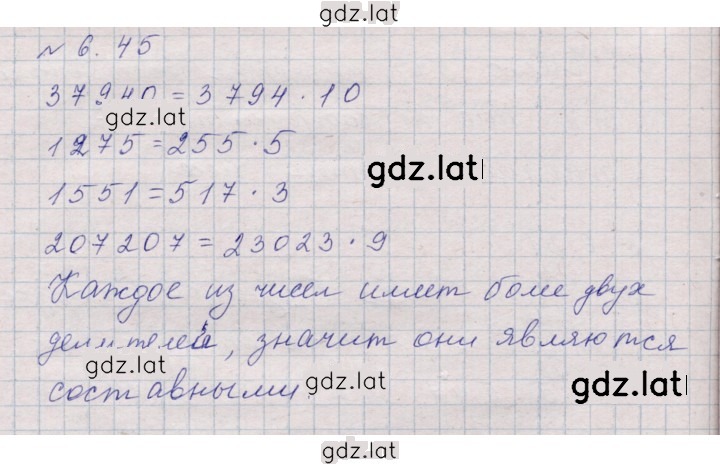 gdz.lat
№ 6.45
37940 = 3794 · 10
gdz.lat
1275 = 255 · 5
gdz.lat
1551 = 517 · 3
207207 = 23023 · 9
Каждое из чисел имеет более двух
делителей, значит они являются
gdz.lat
gdz.lat
gdz.lat
составными.
gdz.lat